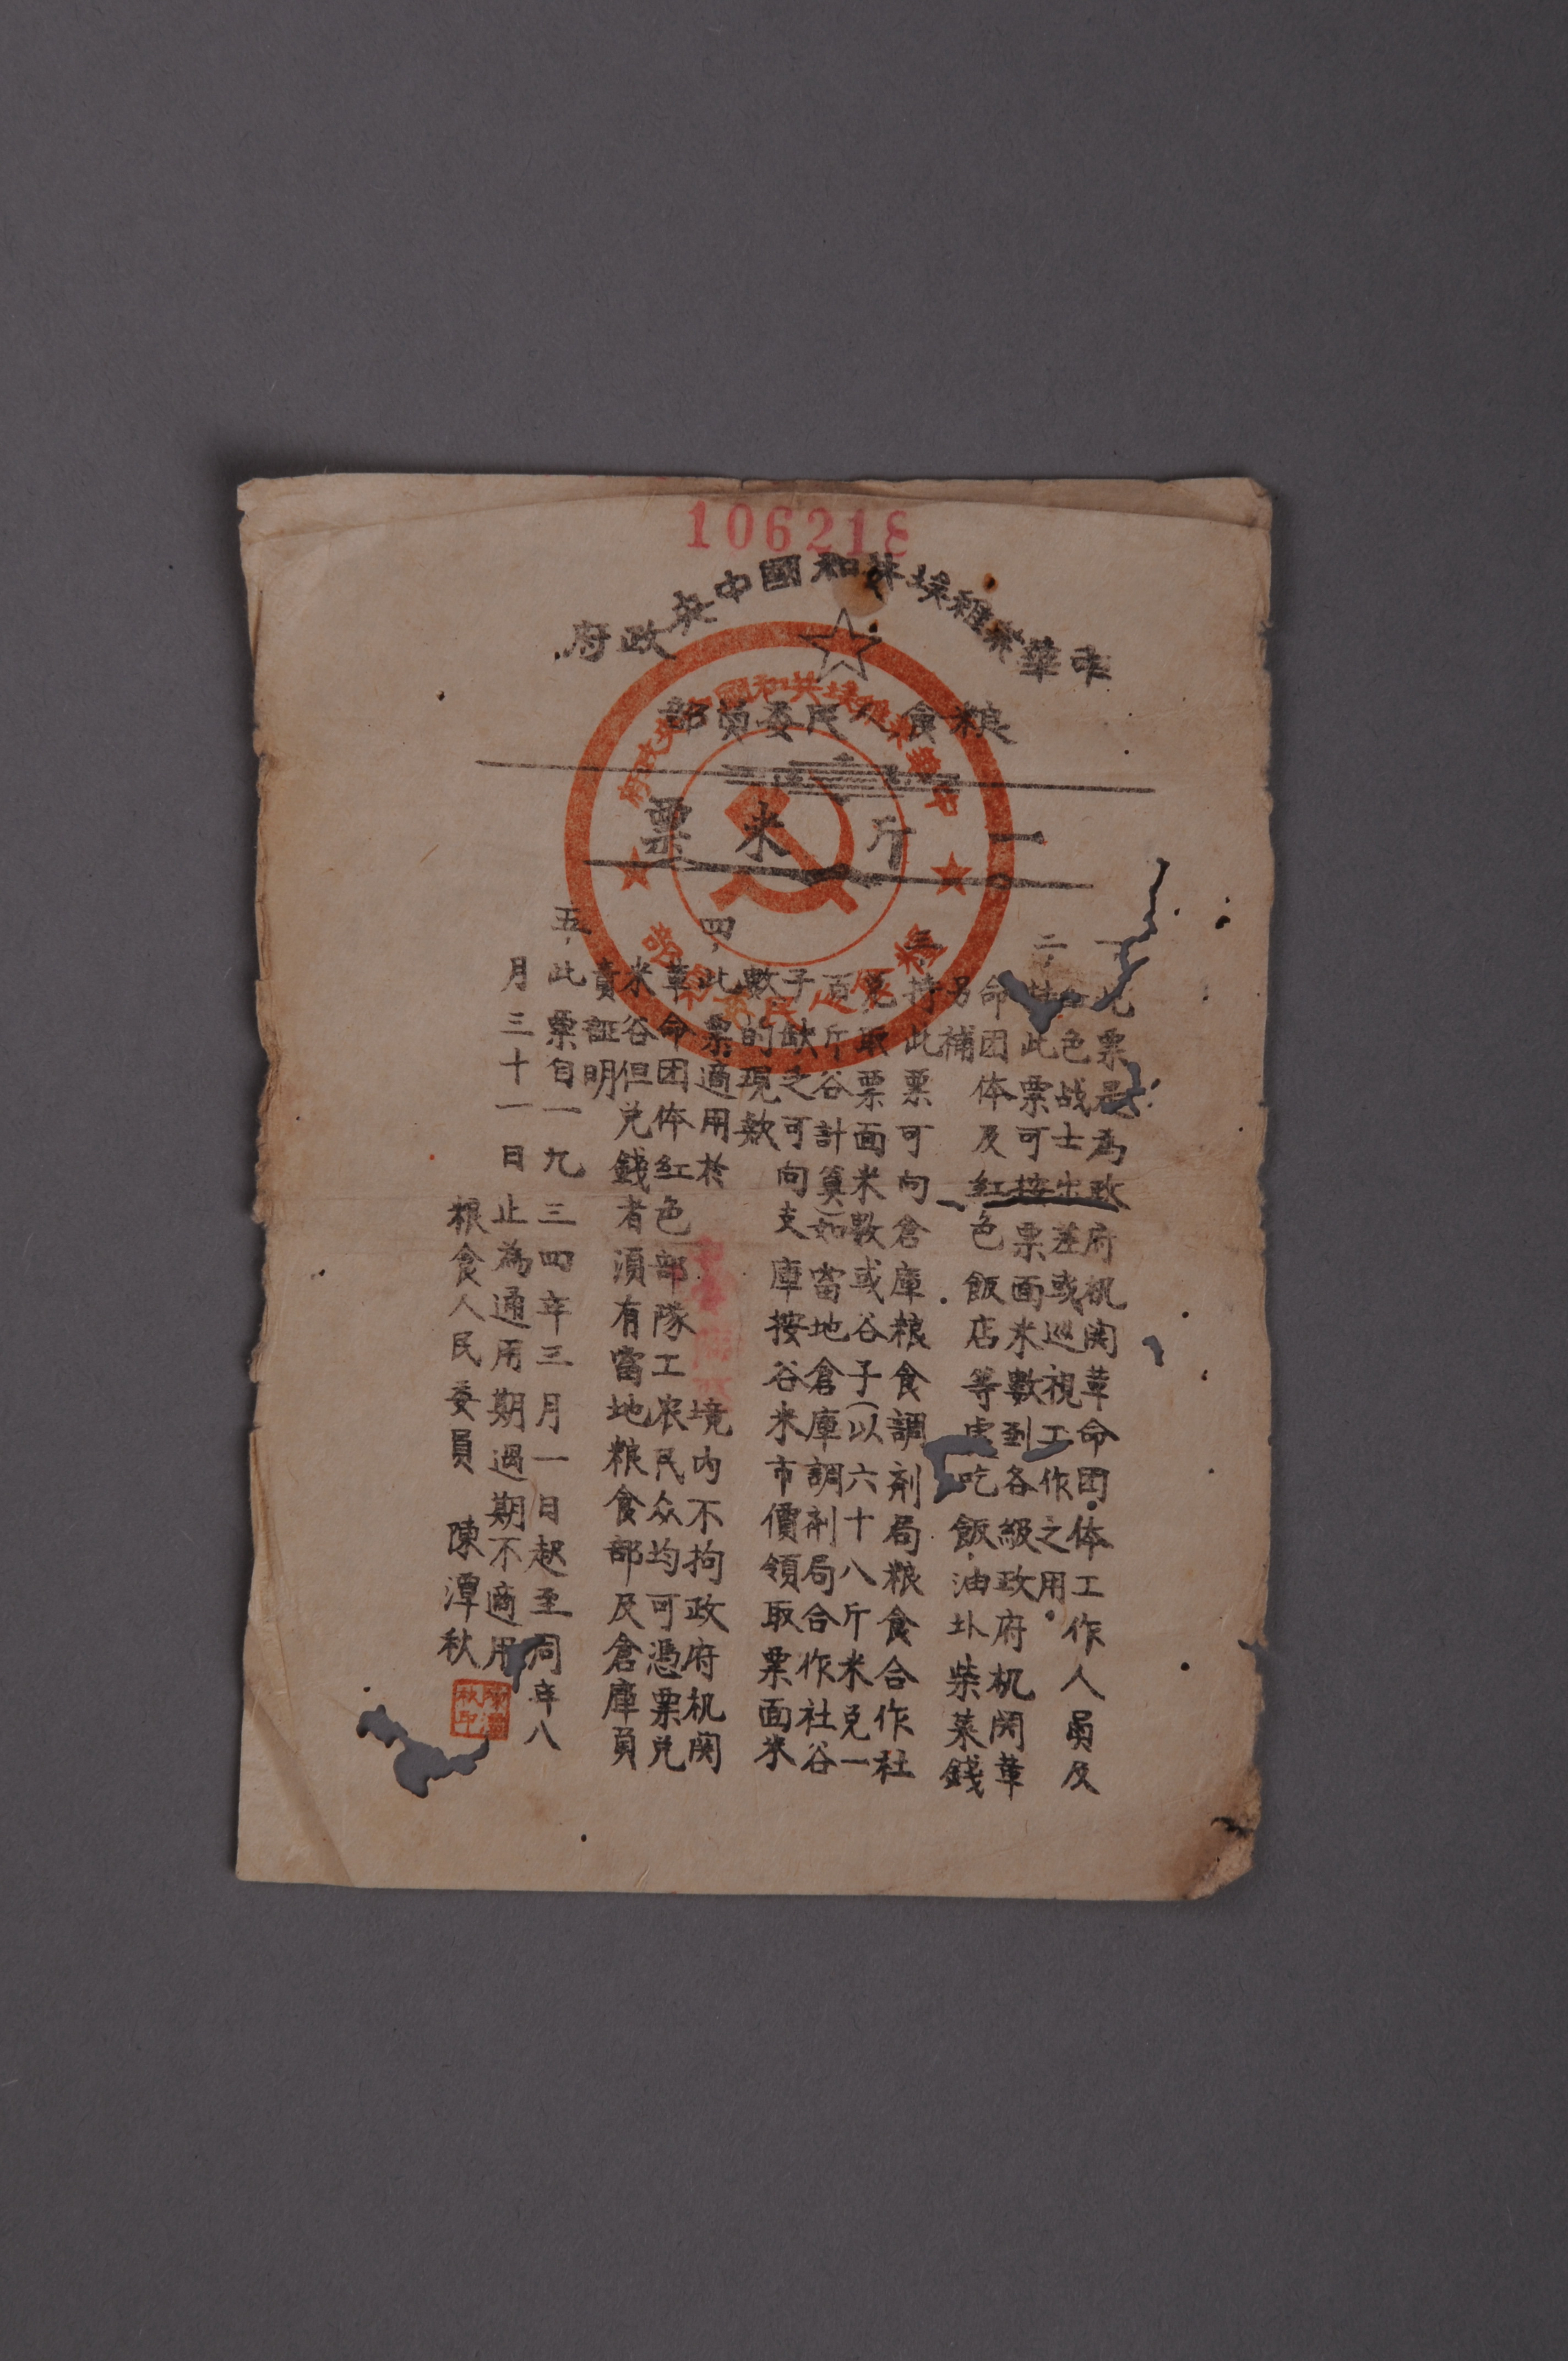 106218
中華蘇維埃共和國中央政府
粮食人民委員部
一斤米票
中華蘇維埃共和國中央政府
粮食人民委員部
一、此票是為政府机関革命団体工作人員及
紅色战士出差或巡視工作之用。
二、持此票可按票面米數到各級政府机関革
命団体及紅色飯店等處吃飯油圤柴菜錢
另補
三、持此票可向倉庫粮食調剂局粮食合作社
兌取票面米數或谷子(以六十八斤米兌一
百斤谷計算)如當地倉庫調剂局合作社谷
子缺乏可向支庫按谷米市價領取票面米
數的現欵
四、此票適用於 境内不拘政府机関
革命団体紅色部隊工农民众均可憑票兌
米谷但兌錢者須有當地粮食部及倉庫負
責証明
五、此票自一九三四年三月一日起至同年八
月三十一日止為通用期過期不適用
粮食人民委員 陳潭秋
陳潭秋印